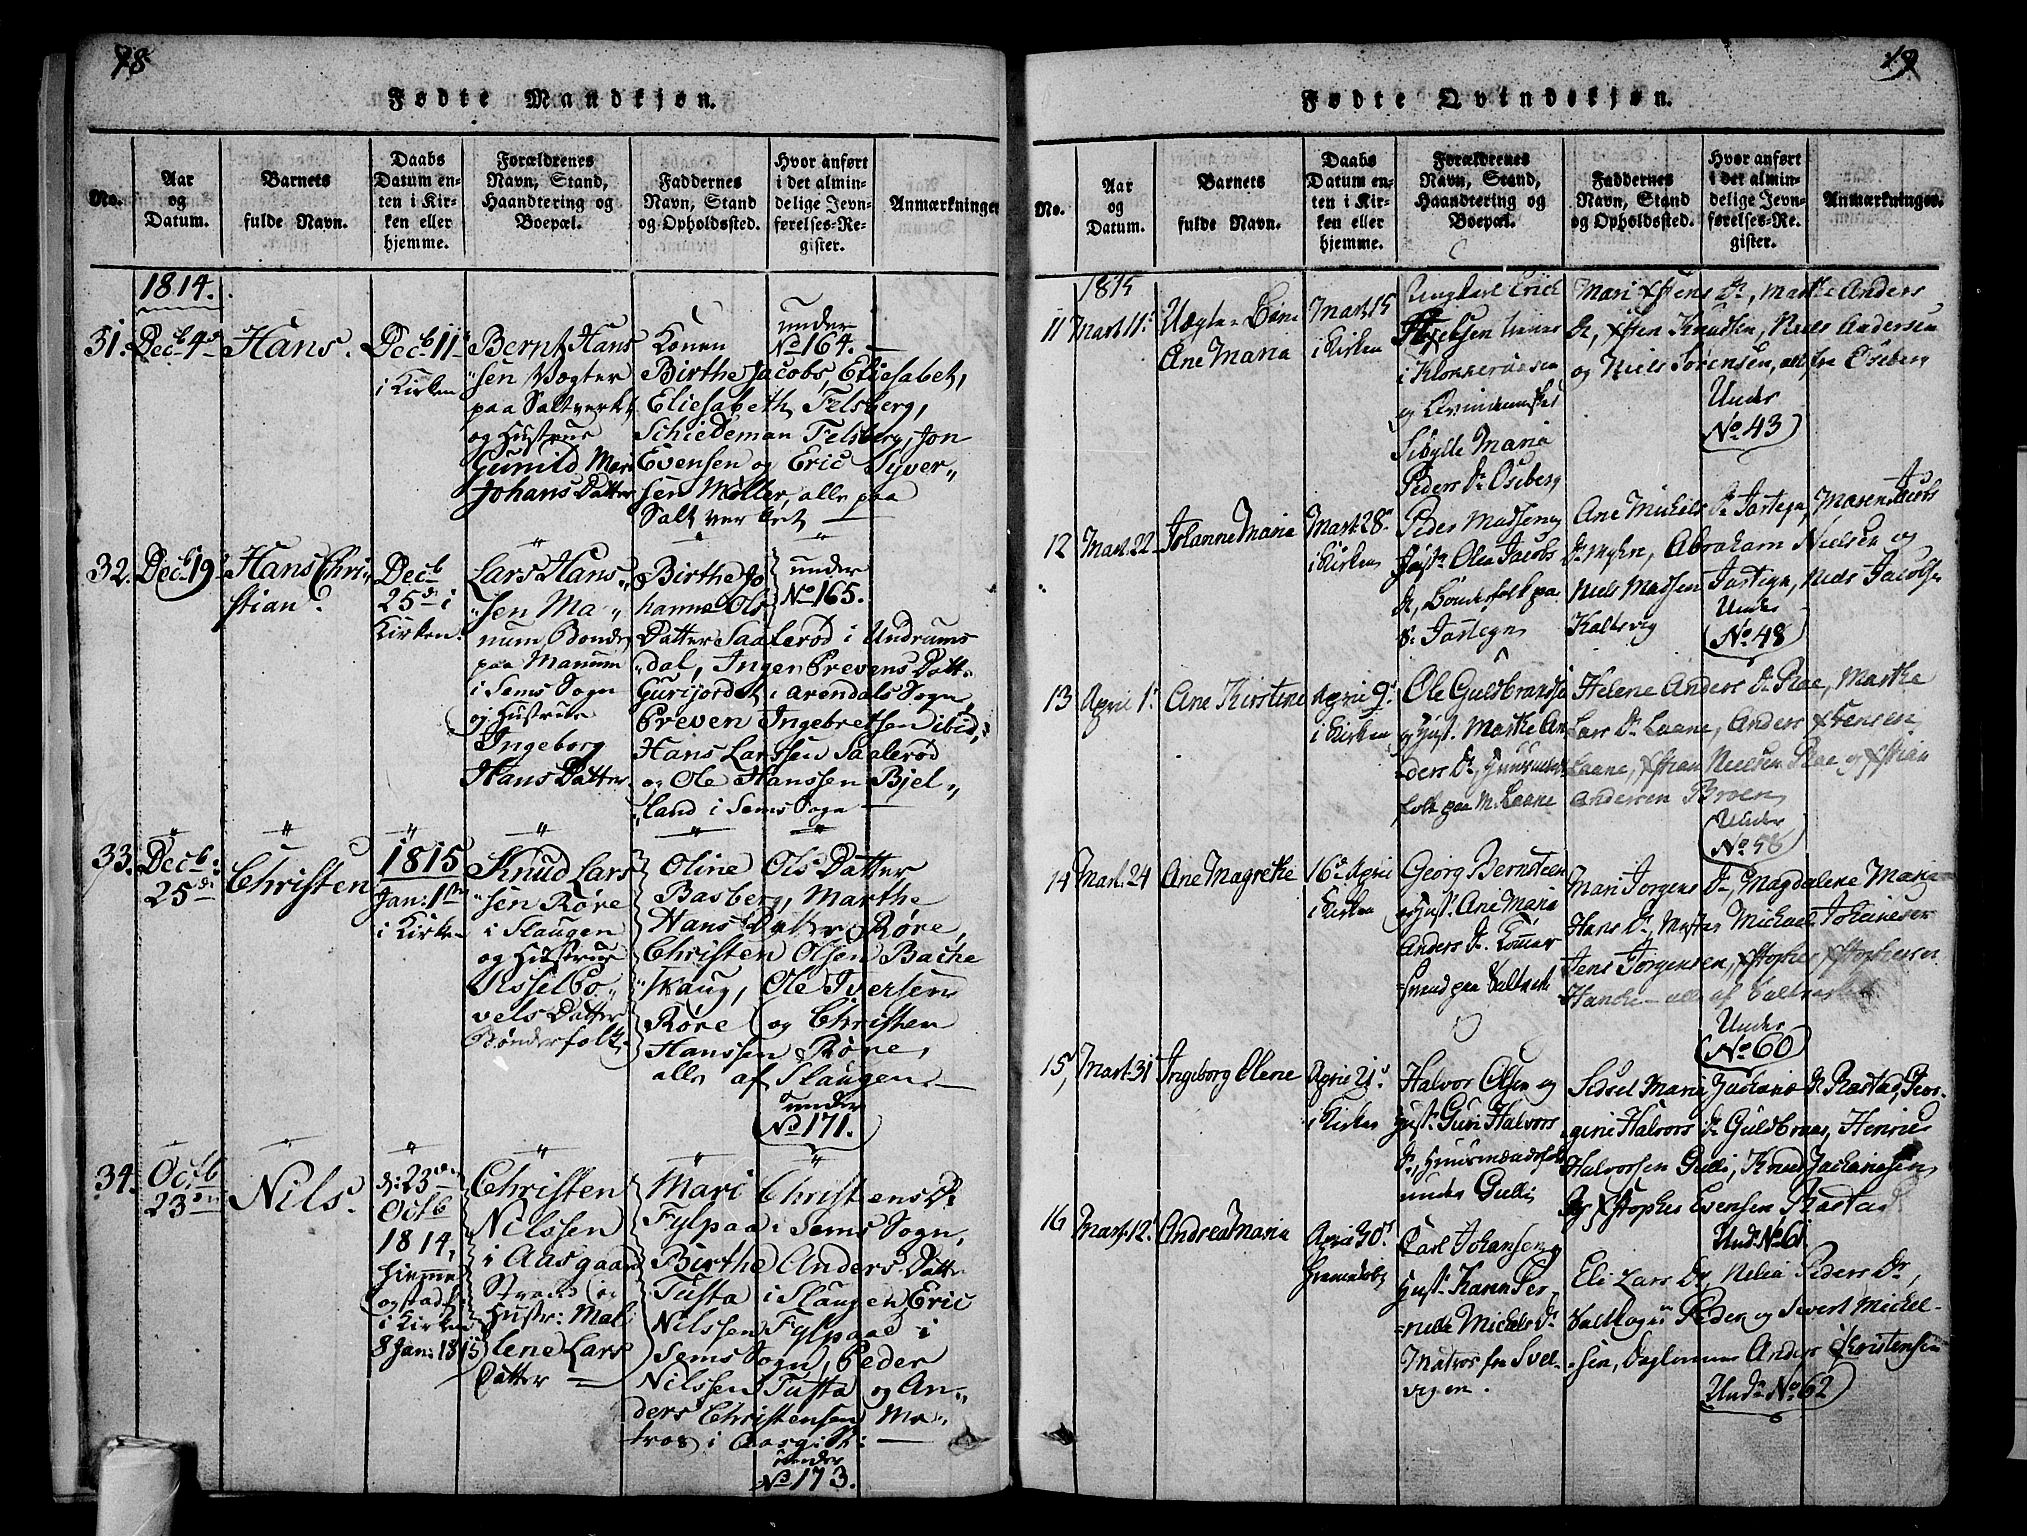 78
Fødte Mandkjøn.
No.
Aar og Datum.
Barnets fulde Navn.
Daabs Datum enten i Kirken eller hjemme.
Forældrenes Navn, Stand, Haandtering og Boepæl.
Faddernes Navn, Stand og Opholdssted.
Hvor anført i det almindelige Jevnførelses-Register.
Anmærkninger
1814.
31.
Decb 4de
Hans.
Decb 11te
i Kirken
Bernt Hans
sen Vægter
paa Saltverket
og Hustrue
Gunild Mari
Johans Datter
Konen
Birthe Jacobs, Eliesabet,
Eliesabeth Felsberg,
Schiedeman Felsberg, Jon
Evensen og Eric Syver„
sen Møller, alle paa
Saltverket
under
No 164.
32.
Decb 19
Hans Chri„
stian.
Decb
25de i
Kirken.
Lars Hans„
„sen Ma„
num Bonde
paa Manum
i Sems Sogn
og Hustrue
Ingeborg
Hans Datter
Birthe Jo
hanne Ols
Datter Saalerød i Undrums
dal, Inger Prevens Datt.
Gurijordet i Arendals Sogn,
Preven Ingebretsen ibid:
Hans Larssen Saalerød
og Ole Hanssen Bjel„
„land i Sems Sogn
under
No 165.
33.
Decb:
25de
Christen
1815
Jan: 1ste
i Kirken
Knud Lars
„sen Røre
i Slaugen
og Hustrue
Sisselbo„
vels Datter
Bønderfolk
Oline Ols Datter
Basberg, Marthe
Hans Datter Røre,
Christen Olsen Bache
„skaug, Ole Iversen
Røre og Christen
Hanssen Røre,
alle af Slaugen
under
No 171.
34.
Octb
23den
Nils.
d: 23de
Octb
1814,
hjemme
og stadf.
i Kirken
8 Jan: 1815
Christen
Nilssen
i Aasgaard
Strand og
Hustr: Mal
lene Lars
Datter
Mari Christens D.
Fylpaa i Sems Sogn,
Birthe Anders Datter
Tufta i Slaugen Eric
Nilssen Fylpaae i
Sems Sogn, Peder
Nilssen Tufta og An„
ders Christensen Ma„
tros i Aasg. St:
under
No 173.
19
Fødte Qvindekjøn.
No.
Aar og Datum.
Barnets fulde Navn.
Daabs Datum enten i Kirken eller hjemme.
Forældrenes Navn, Stand, Haandtering og Boepæl.
Faddernes Navn, Stand og Opholdssted.
Hvor anført i det almindelige Jevnførelses-Register.
Anmærkninger.
1815
11
Mart. 11te
Uægte
Ane Maria
Mart. 15
i Kirken
Ungkarl Erick
i Klokkeraasen
og Qvindemsket
Sibylle Maria
Peders Dr Oseberg
Mari Xstens Dr, Marthe Anders
Dr, Xsten Knudsen, Niels Andersen
og Niels Sørensen, alt fra Oseberg
Under
No 43
12
Mart. 22
Johanne Maria
Mart. 28
i Kirken
Peder Madsen og
Hust. Olea Jacobs
Dr, Bønderfolk paa
Jartegn
Ane Michels Dr Jartegn, Maren Jacobs
Dr Myhn, Abraham Nielsen og
Niels Madsen Jartegn, Niels Jacobsen
Kaltvig
Under
No 48
13
April 1.
Ane Kirstine
April 9.
i Kirken
Ole Guldbrandse
og Hust. Marthe An
ders Dr, Huusmands
folk paa N. Laane
Helene Anders Dr Roe, Marthe
Lars Dr Laane, Anders Xstensen
Laane, Xstian Nielsen Roe og Xstian
Andersen Broen
Under
No 58
14
Mart. 24
Ane Magrethe
16. April
i Kirken
Georg Bernsteen
og Hust. Ane Maria
Anders Dr
Mari Jørgens Dr, Magdalene Maria
Hans Dr, Mester Michael Johannesen
Jens Jørgensen, Xstopher Xstophersen
Under
No 60
15,
Mart. 31
Ingeborg Olene
April 21.
i Kirken
Halvor Olsen og
Hust. Guri Halvors
Dr, Huusmandsfolk
under Gulli
Sidsel Marie Zacharias Dr Rastad,
gine Halvors Dr Guldbraas, Henric
Halvorsen Gulli, Knud Zachariasen
og Xstopher Evensen Rastad
Und. No 61
16
Mart. 12.
Andrea Maria
April 30.
hjemmedøbt
Carl Johansen og
Hust. Karen Per
nelle Michels Dr
Matros fra Svel-
vigen.
Eli Lars Dr, Nelia Peders Dr,
Peder og Sivert Michel-
sen, Daglønner Anders Christensen
Undr No 62